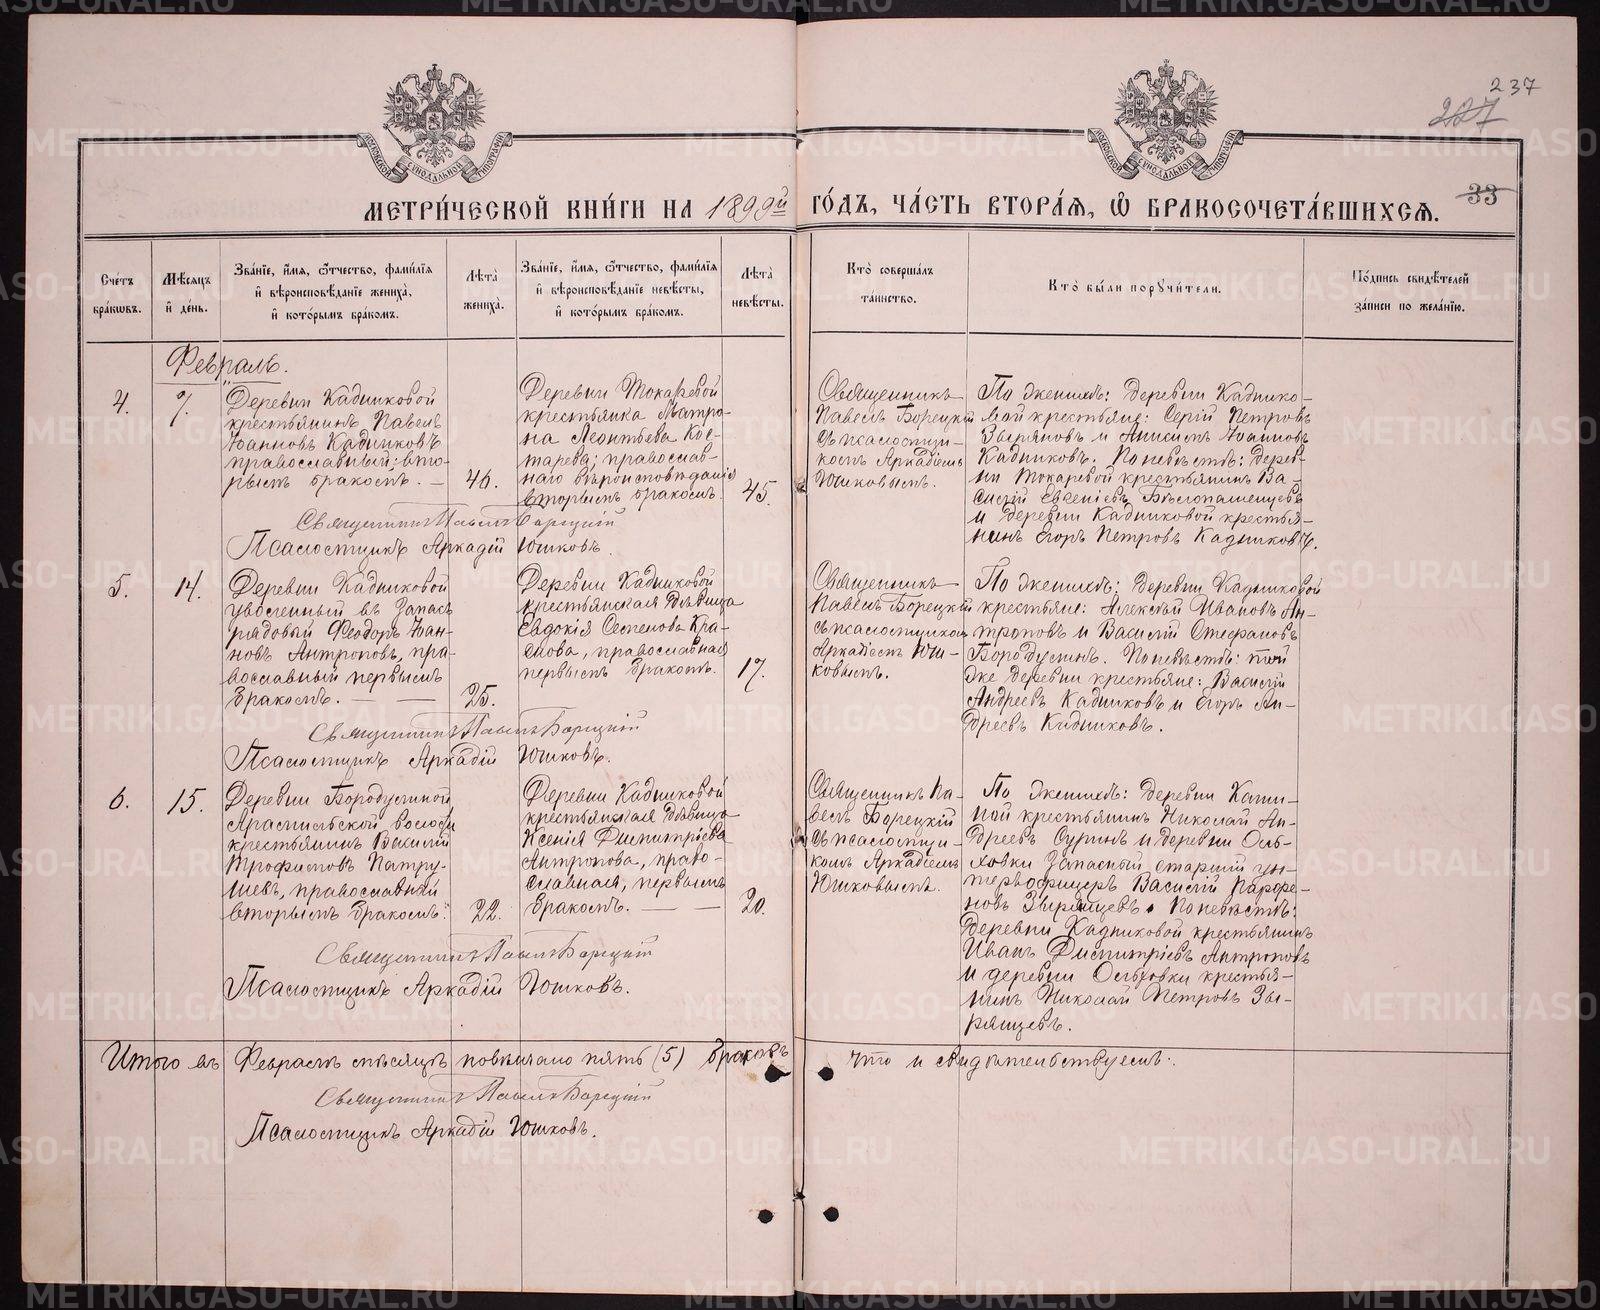 237
227
33
МЕТРИ́ЧЕСКОЙ КНИ́ГИ НА 1899й ГО́ДЪ, ЧА́СТЬ ВТОРА́Я, Ѽ БРАКОСОЧЕТА́ВШИХСЯ.
Сче́тъ бра́кѡвъ.
Мѣ́сяцъ и де́нь.
Зва́нїе, и́мя, ѻ́тчество, фами́лїя
и вѣроисповѣ́данїе жениха̀,
и кото́рымъ бра́комъ.
Лѣ́та жениха̀.
Зва́нїе, и́мя, ѻ́тчество, фами́лїя
и вѣроисповѣ́данїе невѣ́сты,
и кото́рымъ бра́комъ.
Лѣ́та невѣ́сты.
Кто̀ соверша́лъ
та́инство.
Кто̀ бы́ли порꙋчи́тели.
По́дпись свидѣ́телей
за́писи по жела́нїю.
Февраль.
4.
7.
Деревни Кадниковой
крестьянинъ Павелъ
Іоанновъ Кадниковъ
православный; вто-
рымъ бракомъ. —
46.
Деревни Токаревой
крестьянка Матро-
на Леонтьева Кос-
тарева; православ-
наго вѣроисповѣданія
вторымъ бракомъ.
45.
Священникъ
Павелъ Борецкій
съ псаломщи-
комъ Аркадіемъ
Юшковымъ.
По женихѣ: деревни Каднико-
вой крестьяне: Сергій Петровъ
Зыряновъ и Анисимъ Іоанновъ
Кадниковъ. По невѣстѣ: дерев-
ни Токаревой крестьянинъ Ва-
силій Евгеніевъ Бѣлопашенцевъ
и деревни Кадниковой крестья-
нинъ Егоръ Петровъ Кадниковъ.
Священникъ Павелъ Борецкій
Псаломщикъ Аркадій Юшковъ.
5.
14.
Деревни Кадниковой
уволенный въ запасъ
рядовый Феодоръ Іоан-
новъ Антроповъ, пра-
вославный первымъ
бракомъ. — —
25.
Деревни Кадниковой
крестьянская дѣвица
Евдокія Семенова Кра-
снова, православная
первымъ бракомъ.
17.
Священникъ
Павелъ Борецкій
съ псаломщикомъ
Аркадіемъ Юш-
ковымъ.
По женихѣ: деревни Кадниковой
крестьяне: Алексѣй Ивановъ Ан-
троповъ и Василій Стефановъ
Бородулинъ. По невѣстѣ: той
же деревни крестьяне: Василій
Андреевъ Кадниковъ и Егоръ Ан-
дреевъ Кадниковъ.
Священникъ Павелъ Борецкій
Псаломщикъ Аркадій Юшковъ.
6.
15.
Деревни Бородулиной
Арамильской волости
крестьянинъ Василій
Трофимовъ Патру-
шевъ, православный
вторымъ бракомъ.
22.
Деревни Кадниковой
крестьянская дѣвица
Ксенія Димитріева
Антропова, право-
славная, первымъ
бракомъ. — —
20.
Священникъ Па-
велъ Борецкій
съ псаломщи-
комъ Аркадіемъ
Юшковымъ.
По женихѣ: деревни
крестьянинъ Николай Ан-
дреевъ Суринъ и деревни Оль-
ховки запасный старшій ун-
теръ-офицеръ Василій Парфе-
новъ Зырянцевъ. По невѣстѣ:
деревни Кадниковой крестьянинъ
Иванъ Димитріевъ Антроповъ
и деревни Ольховки крестья-
нинъ Николай Петровъ Зы-
рянцевъ.
Священникъ Павелъ Борецкій
Псаломщикъ Аркадій Юшковъ.
Итого въ Февралѣ мѣсяцѣ повѣнчано пять (5) браковъ что и свидѣтельствуемъ:
Священникъ Павелъ Борецкій
Псаломщикъ Аркадій Юшковъ.